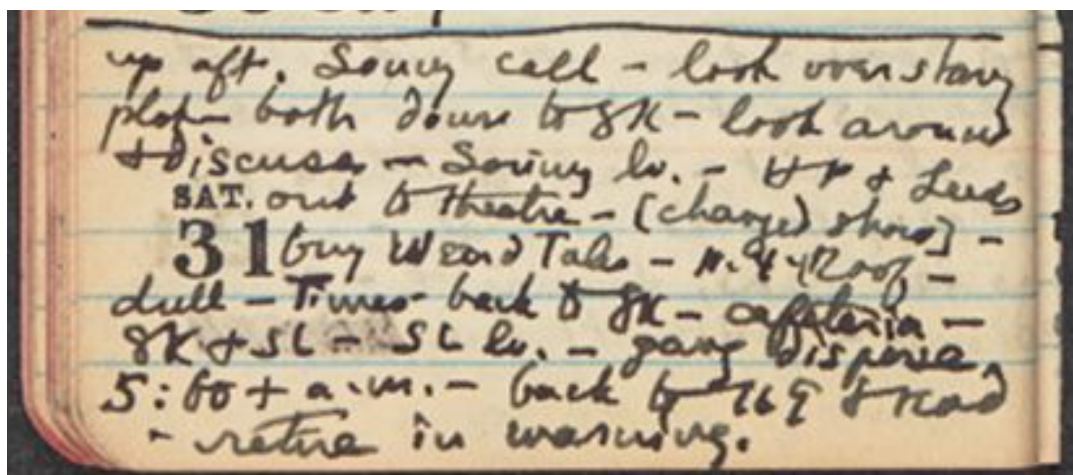 up aft. Sonny call - look over story
plot - both down to 8K - look around
& discuss - Sonny lv. - HP & Leeds
SAT. out to theatre - (change) show] -
31 buy Weird Tales - N.Y. Roof -
dull - Times - back to 8K - cafeteria -
8K & SL - SL lv. - gang disperse
5:00 + a.m. - back to 169 & read
- retire in morning.